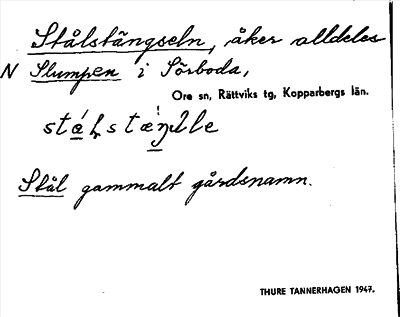 Stålstängseln, åker alldeles
N Slumpen i Sörboda,
Ore sn, Rättviks tg, Kopparbergs län.
Stål gammalt gårdsnamn.
THURE TANNERHAGEN 1947.